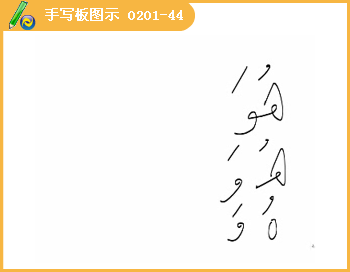 手写板图示 0201-44
هُوَ
هُـ وَ
هُ وَ